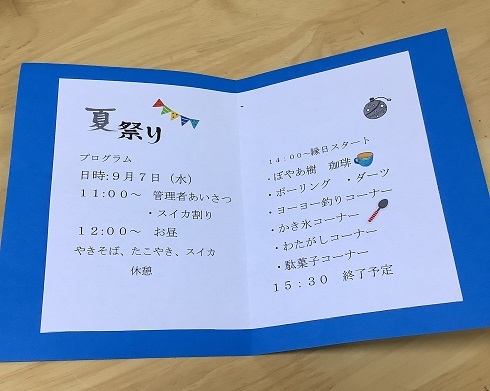 夏祭り
プログラム
日時:9月7日（水）
11:00～　管理者あいさつ
・スイカ割り
12:00～　お昼
やきそば、たこやき、スイカ
休憩
14:00～縁日スタート
・ぼやあ樹　珈琲
・ボーリング　・ダーツ
・ヨーヨー釣りコーナー
・かき氷コーナー
・わたがしコーナー
・駄菓子コーナー
15:30　終了予定